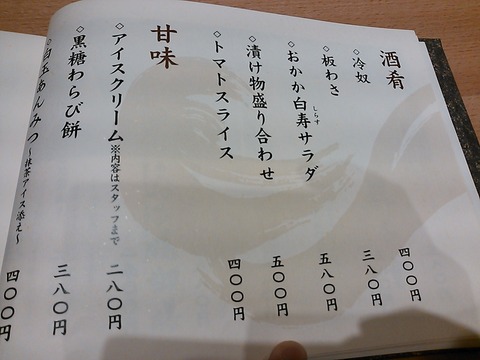 酒肴
◇冷奴 四〇〇円
◇板わさ 三八〇円
◇おかか白寿サラダ 五八〇円
しらす
◇漬け物盛り合わせ 五〇〇円
◇トマトスライス 四〇〇円
甘味
◇アイスクリーム※内容はスタッフまで 二八〇円
◇黒糖わらび餅 三八〇円
◇白玉あんみつ～抹茶アイス添え～ 四〇〇円